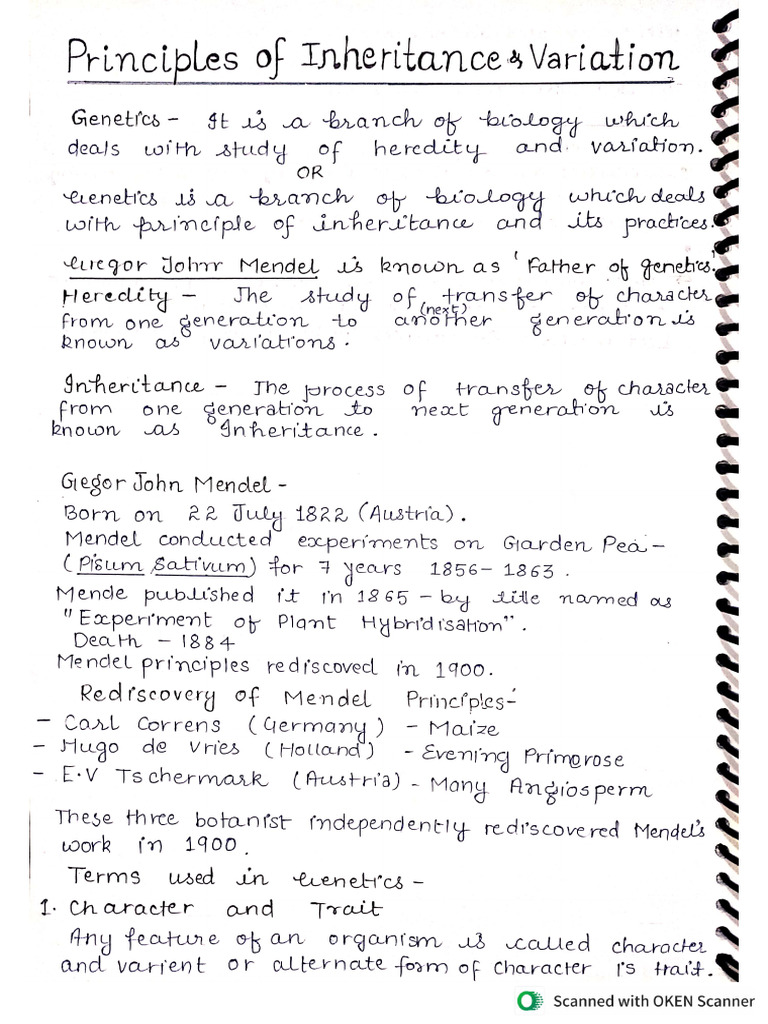 Principles of Inheritance & Variation
Genetics - It is a branch of biology which
deals with study of heredity and variation.
OR
Genetics is a branch of biology which deals
with principle of inheritance and its practices.
Gregor Johnn Mendel is known as 'Father of genetics.'
Heredity - The study of transfer of character
(next)
from one generation to another generation is
known as variations.
Inheritance - The process of transfer of character
from one generation to next generation is
known as Inheritance.
Gegor John Mendel -
Born on 22 July 1822 (Austria).
Mendel conducted experiments on Garden Pea -
(Pisum Sativum) for 7 years 1856-1863.
Mende published it in 1865 - by title named as
"Experiment of Plant Hybridisation".
Death - 1884
Mendel principles rediscoved in 1900.
Rediscovery of Mendel Principles -
- Carl Correns (Germany) - Maize
- Hugo de Vries (Holland) - Evening Primerose
- E.V Tschermark (Austria) - Many Angiosperm
These three botanist independently rediscovered Mendel's
work in 1900.
Terms used in Genetics -
1. Character and Trait
Any feature of an organism is called character
and varient or alternate form of character is trait.
Scanned with OKEN Scanner